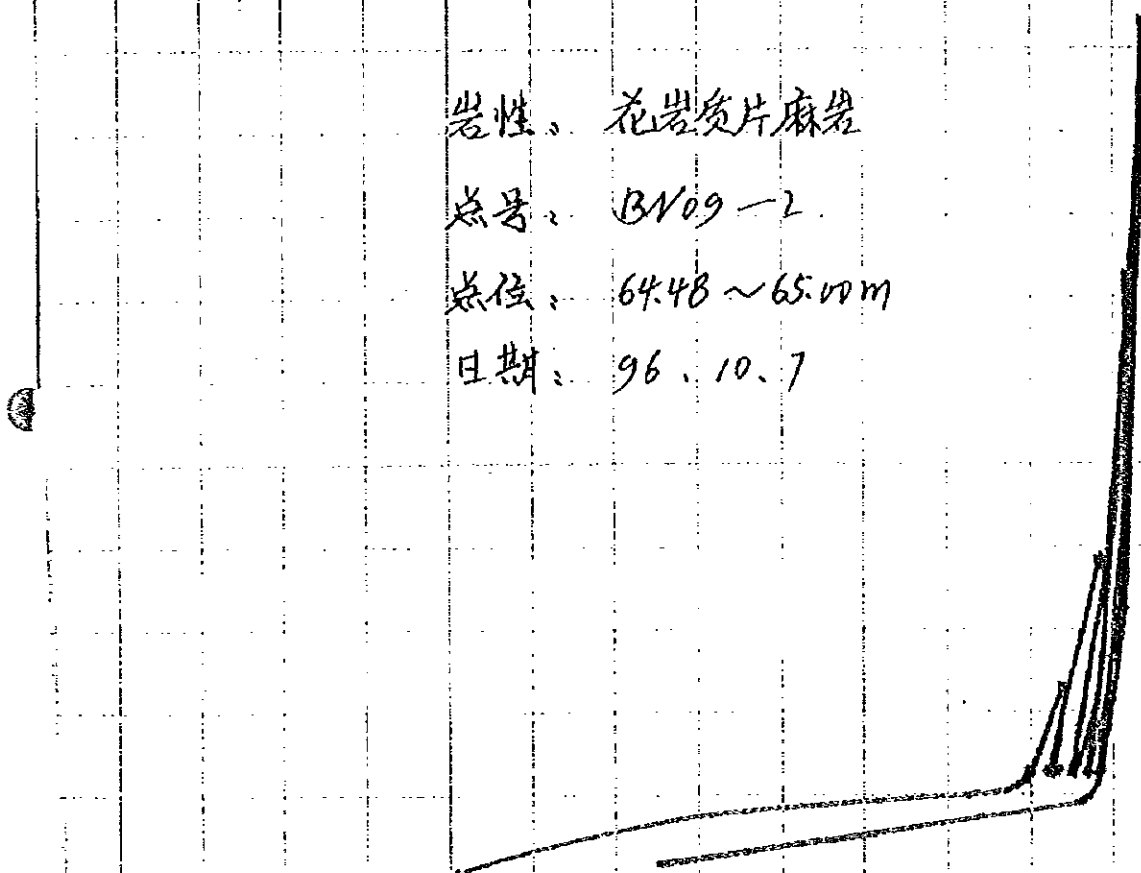 岩性: 花岩质片麻岩
点号: BN09-2
点位: 64.48~65.00m
日期: 96.10.7